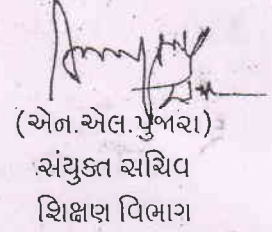 (એન.એલ.પુંજારા)
સંયુક્ત સચિવ
શિક્ષણ વિભાગ